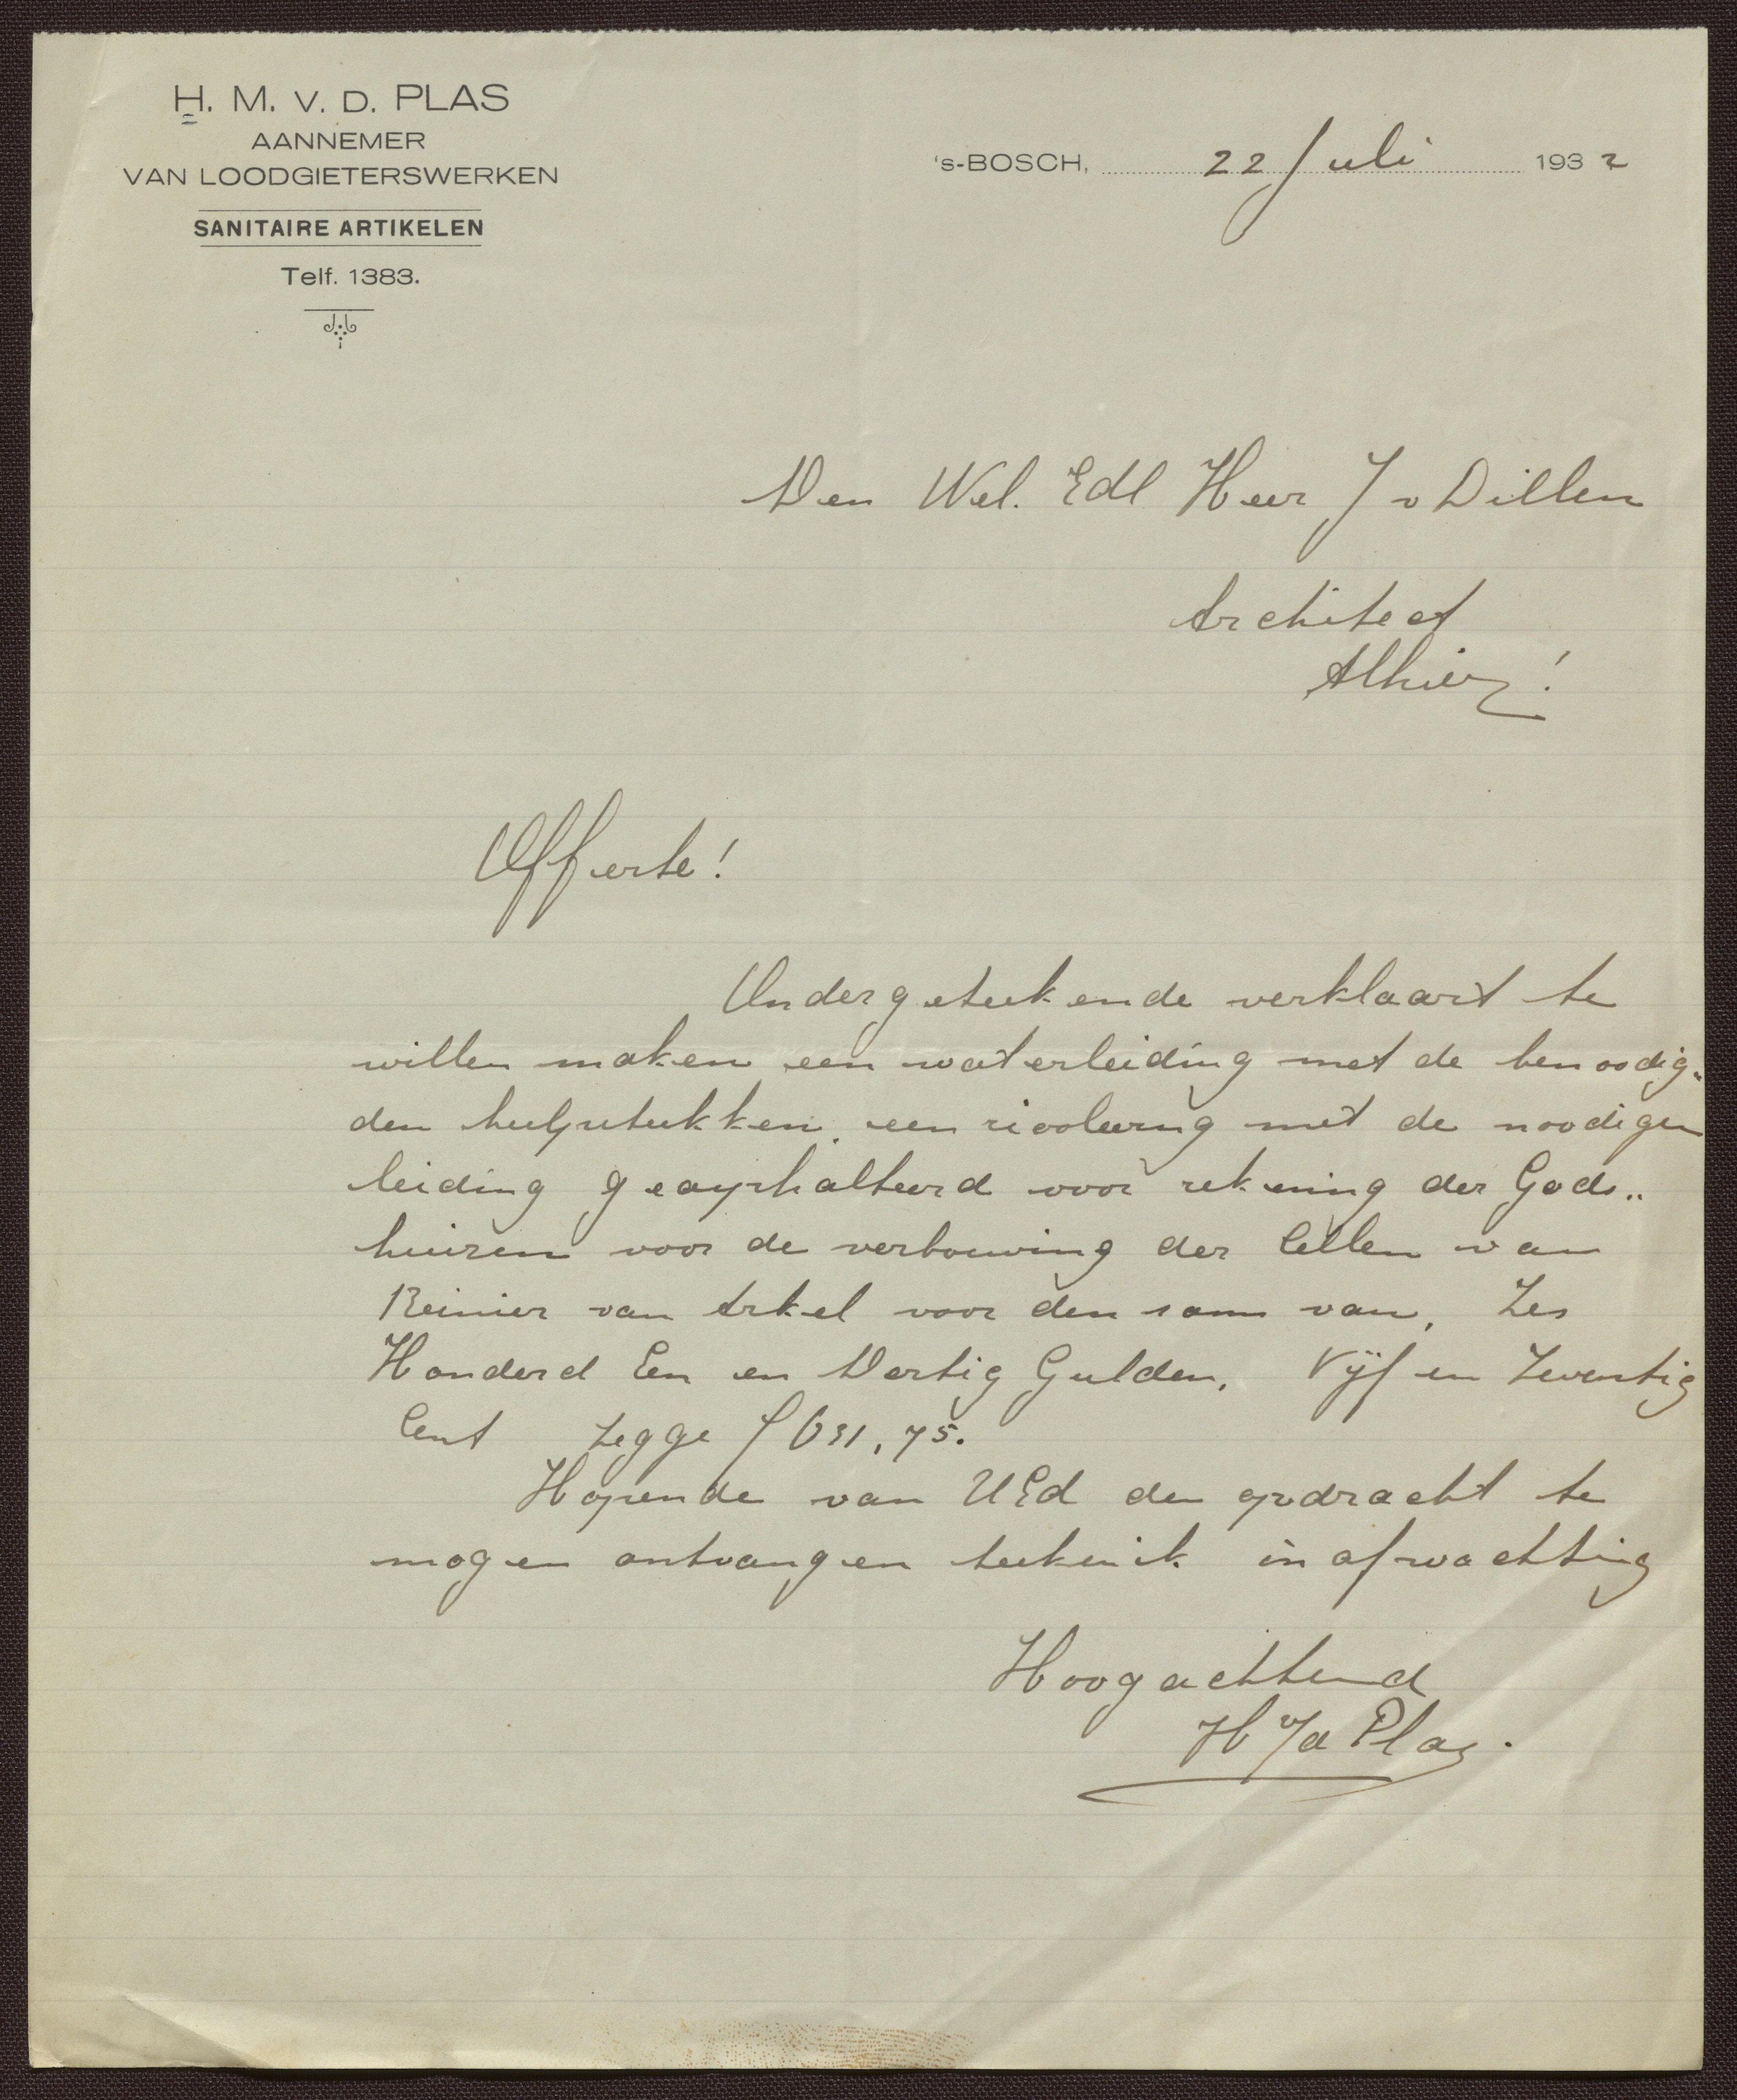 H. M. V. D. PLAS
AANNEMER
VAN LOODGIETERSWERKEN
SANITAIRE ARTIKELEN
Telf. 1383.
's-BOSCH, 22 Juli 1932
Den Wel. Edl Heer J v Dillen
Architect
Alhier!
Offerte!
Ondergeteekende verklaart te
willen maken een waterleiding met de benoodig„
den hulpstukken, een rioolering met de noodigen
leiding geasphalteerd voor rekening der Gods„
huizen voor de verbouwing der Cellen van
Reinier van Arkel voor den som van, Zes
Honderd Een en Dertig Gulden, Vijf en Zeventig
Cent zegge f 631,75.
Hopende van UEd den opdracht te
mogen ontvangen teeken ik in afwachting
Hoogachtend
H v/d Plas.